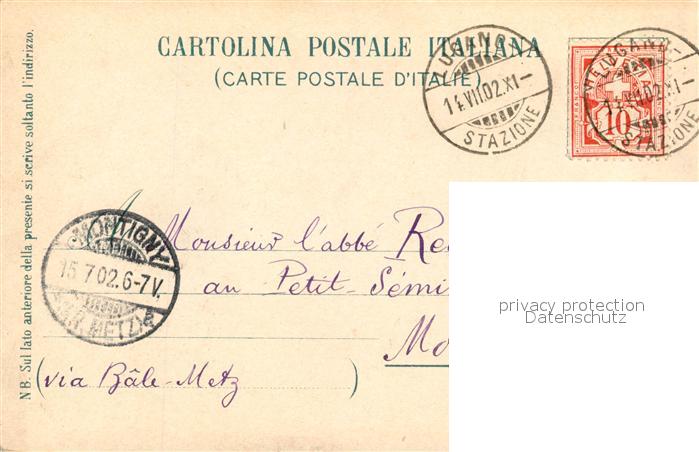 CARTOLINA POSTALE ITALIANA
(CARTE POSTALE D'ITALIE)
LUGANO
14.VII.02.XI-
STAZIONE
LUGANO
14.VII.02.XI-
STAZIONE
HELVETIA
FRANCO
10
NB. Sul lato anteriore della presente si scrive soltanto l'indirizzo.
MONTIGNY
15.7.02.6-7V.
METZ
Monsieur l'abbé Re
au Petit-Sémi
Mo
(via Bâle-Metz )
privacy protection
Datenschutz